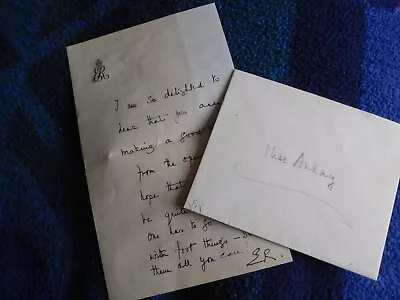 ER
I am so delighted to
hear that you are
making a good
from the ope
hope that
be quite
one has to go
with first things —
them all you can! ER
Miss Ankay